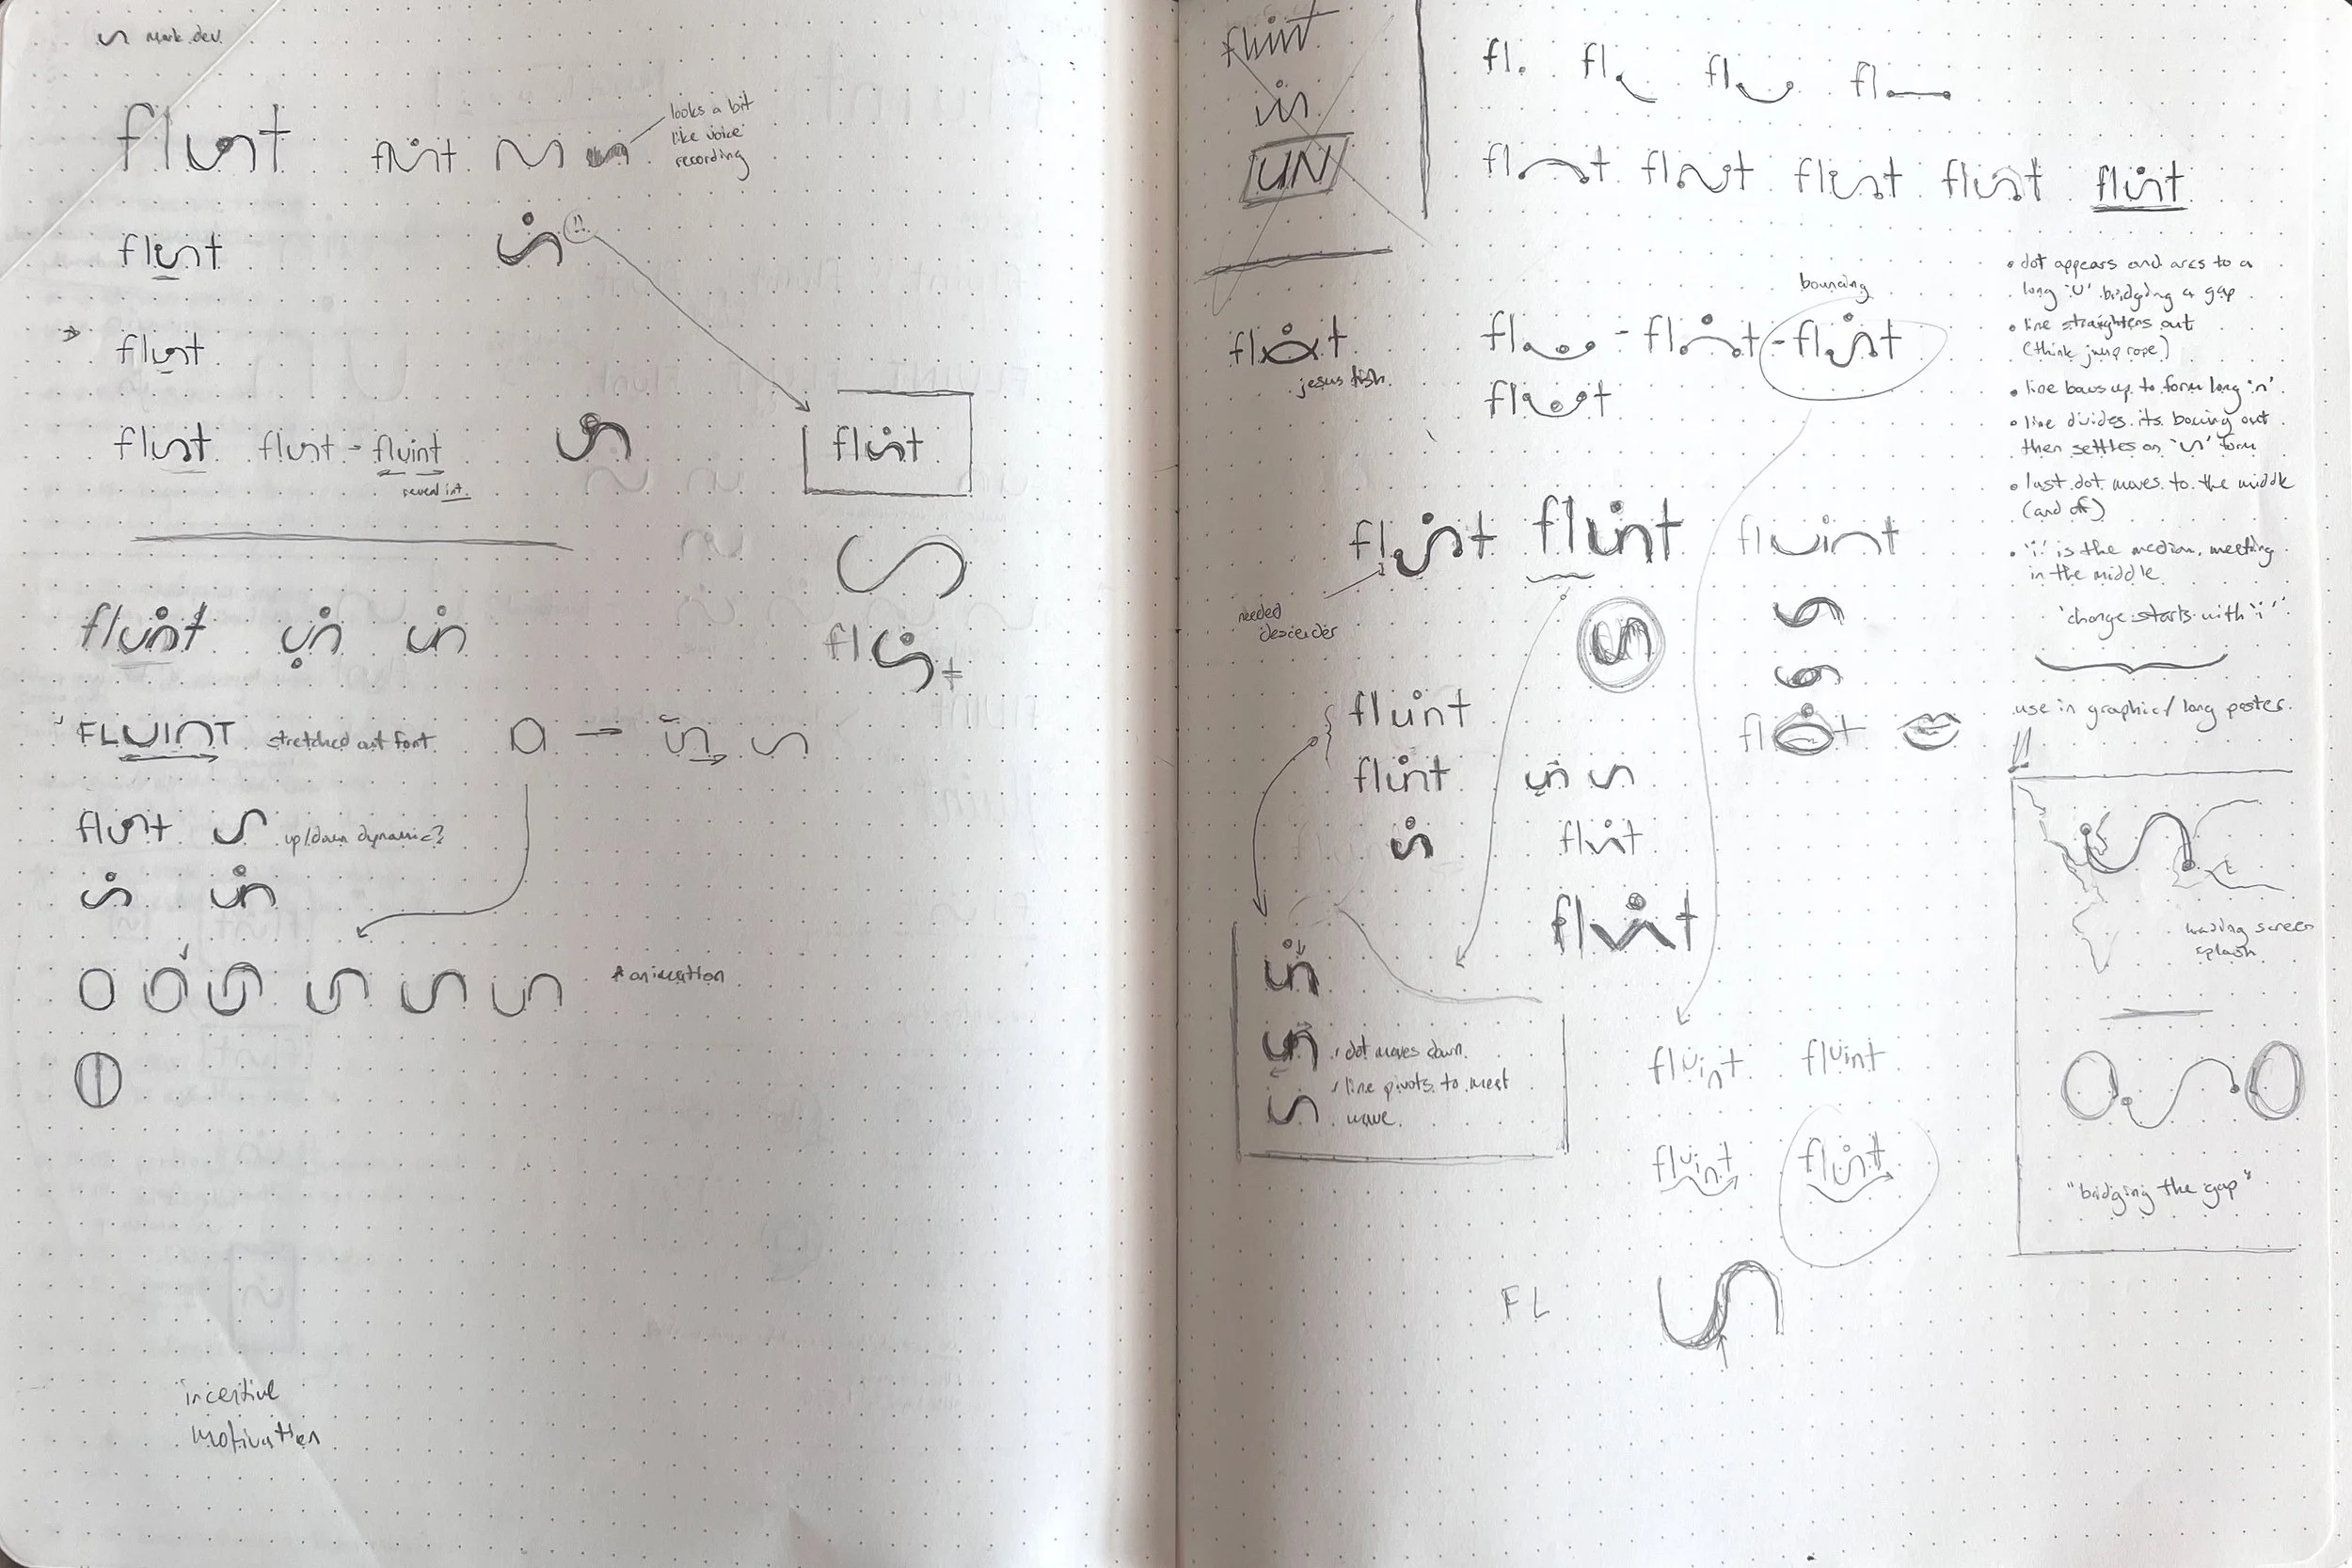 mark dev.
fluint
fluint
looks a bit
like voice
recording
fluint
fluint
fluint
flunt - fluint
reveal int.
fluint
fluint
fl t
FLUINT stretched out font
flunt up/down dynamic?
* animation
incentive
motivation
fluint
in
UN
fl. fl fl fl
fl t fl t fluint fluint fluint
bouncing
fl t
jesus fish
fl - fl t - fluint
fl t
• dot appears and arcs to a
long 'U' bridging a gap
• line straightens out
(think jump rope)
• line bows up to form long 'n'
• line divides its bowing out
then settles on 'un' form
• last dot moves to the middle
(and off)
• 'i' is the median, meeting
in the middle
'change starts with 'i''
use in graphic / long poster.
fluint fluint fluint
needed
descender
fl t
fluint
fluint
fluint
fluint
• dot moves down.
• line pivots to meet
wave.
fluint fluint
fluint fluint
FL
loading screen
splash
"bridging the gap"